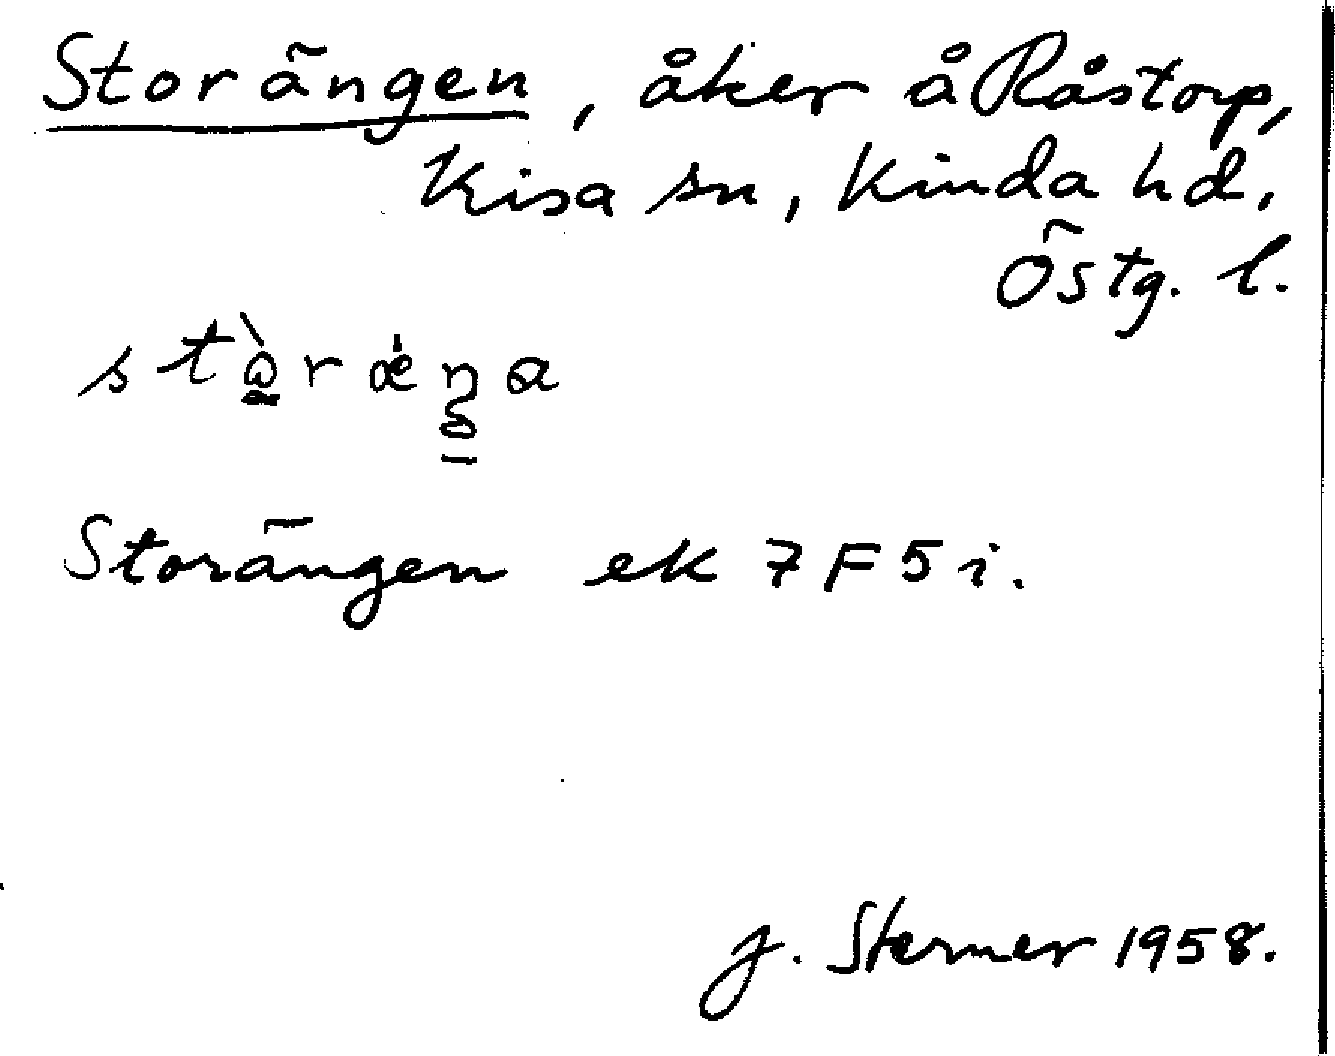 Storängen, åker å Råstorp,
Kisa sn, Kinda hd,
Östg. l.
Storängen ek 7 F 5 i.
J. Sterner 1958.